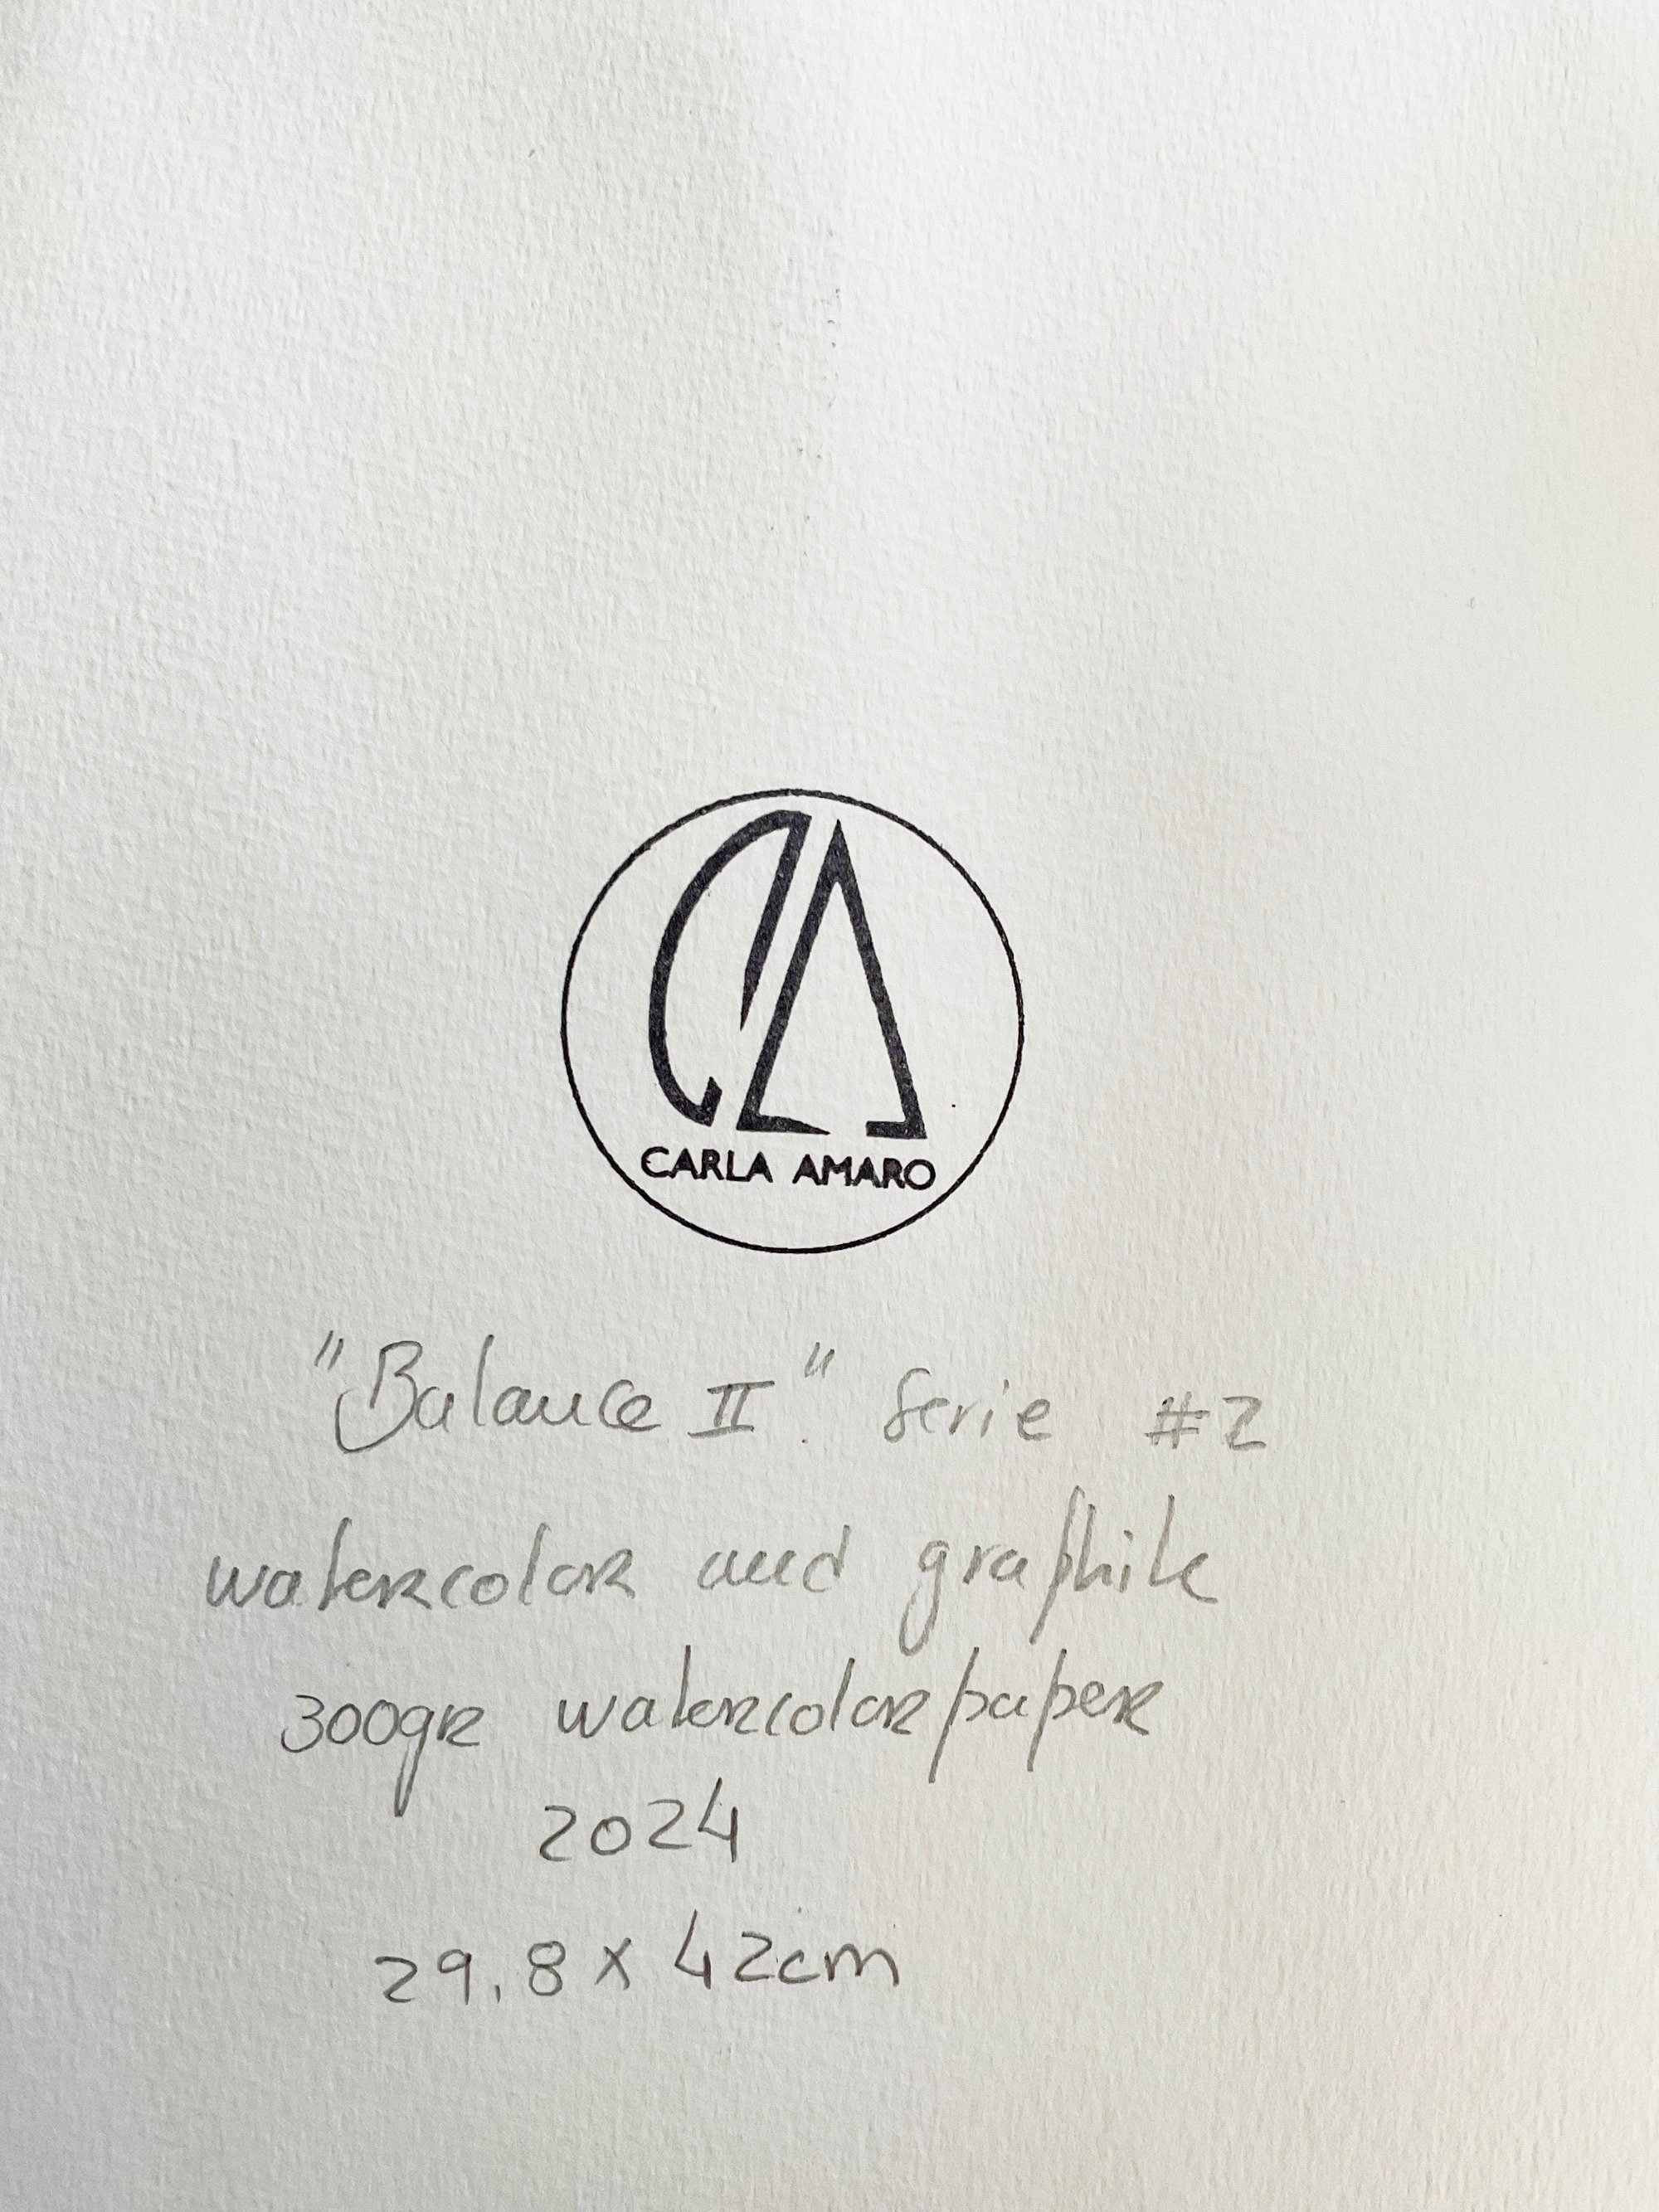 CA
CARLA AMARO
"Balance II". Serie #2
watercolor and graphite
300gr watercolorpaper
2024
29.8 x 42cm